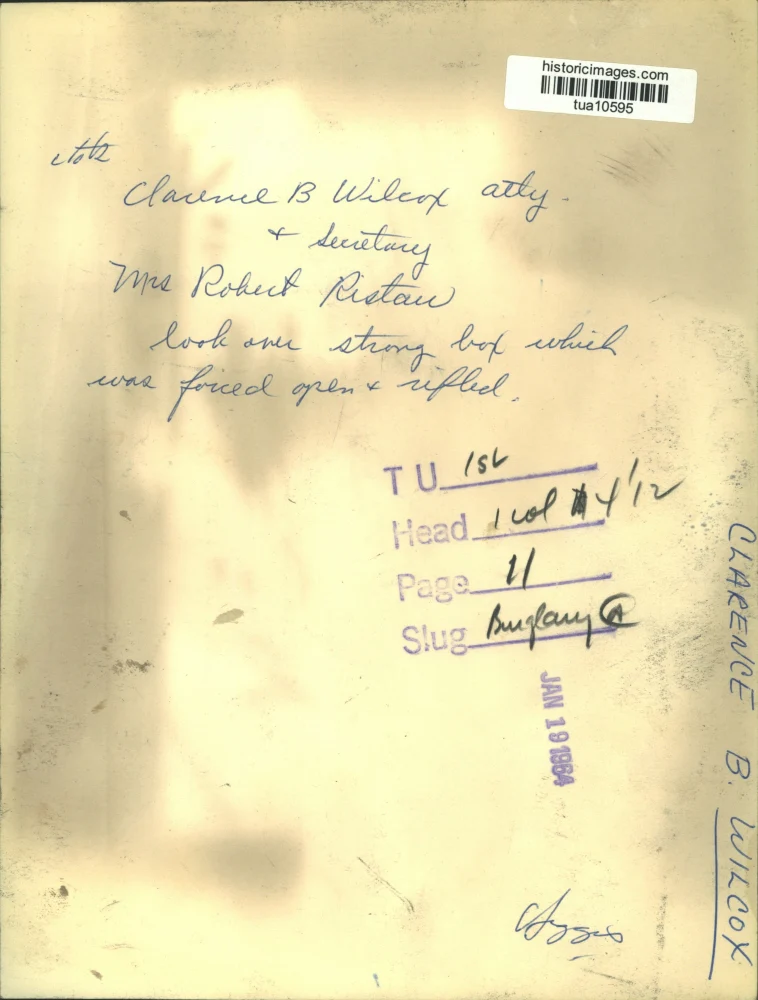 historicimages.com
tua10595
Clarence B Wilcox atty.
+ Secretary
Mrs Robert Ristau
look over strong box which
was forced open + rifled.
T U 1st
Head 1 col 4 1/2
Page 11
Slug Burglary A
JAN 19 1964
CLARENCE B. WILCOX